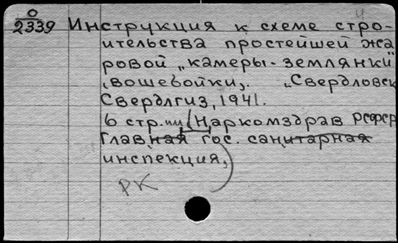 О
2339 Инструкция к схеме стро-
ительства простейшей жа
ровой „камеры-землянки"
(вошебойки). „Свердловск
Свердлгиз, 1941.
6 стр. (Наркомздрав РСФСР
Главная гос. санитарная
инспекция,)
РК